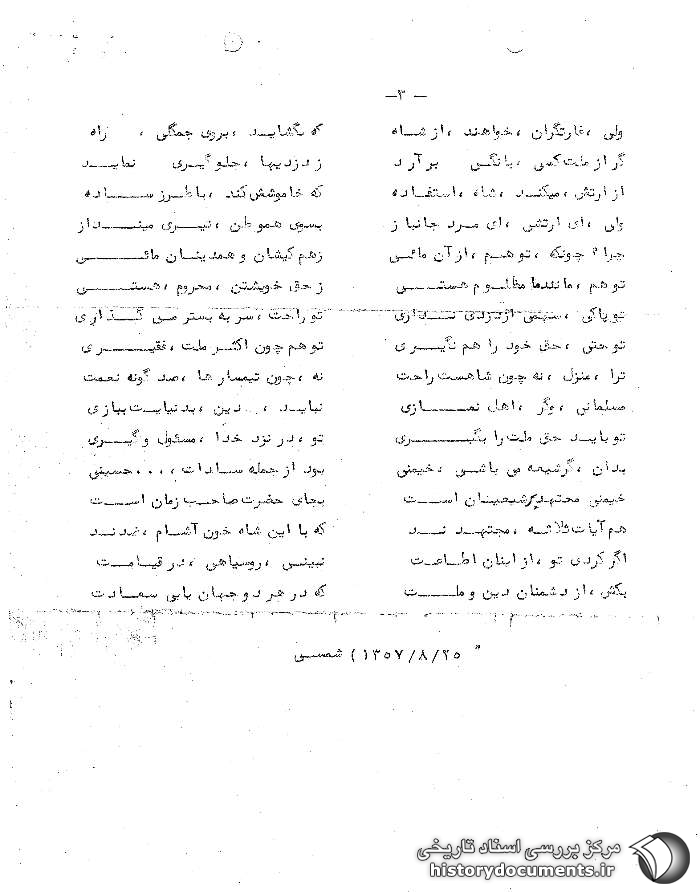 — ۳ —
ولی ، غارتگران ، خواهند ، از شاه که بگشاید ، بروی جمگی ، راه
گر از ملت کسی ، بانگی بر آرد ز دزدیها ، جلوگیری نماید
از ارتش ، میکند ، شاه ، استفاده که خاموشش کند ، با طرز ساده
ولی ، ای ارتشی ، ای مرد جانباز بسوی هموطن ، تیری مینداز
چرا ؟ چونکه ، تو هم ، از آن مائی ز هم کیشان و همدینان مائی
تو هم ، مانند ما مظلوم هستی ز حق خویشتن ، محروم ، هستی
تو پاکی ، سهمی از دزدی نداری تو راحت ، سر به بستر می گذاری
تو حتی ، حق خود را هم نگیری تو هم چون اکثر ملت ، فقیری
ترا ، منزل ، نه چون شاهست راحت نه ، چون تیمسار ها ، صد گونه نعمت
مسلمانی ، وگر ، اهل نمازی نباید ، ... دین ، بدنیایت ببازی
تو باید حق ملت را بگیری تو ، در نزد خدا ، مسئول و گیری
بدان ، گر شیعه می باشی ، خیمنی بود از جمله سادات ، ... حسینی
خیمنی مجتهد بر شیعیان است بجای حضرت صاحب زمان است
هم آیات ثلاثه ، مجتهد ند که با این شاه خون آشام ، ضدند
اگر کردی تو ، از اینان اطاعت نبینی ، روسیاهی ، در قیامت
بکش ، از دشمنان دین و ملت که در هر دو جهان یابی سعادت
" ۱۳۵۷/۸/۲۵ ) شمسی
مرکز بررسی اسناد تاریخی
historydocuments.ir